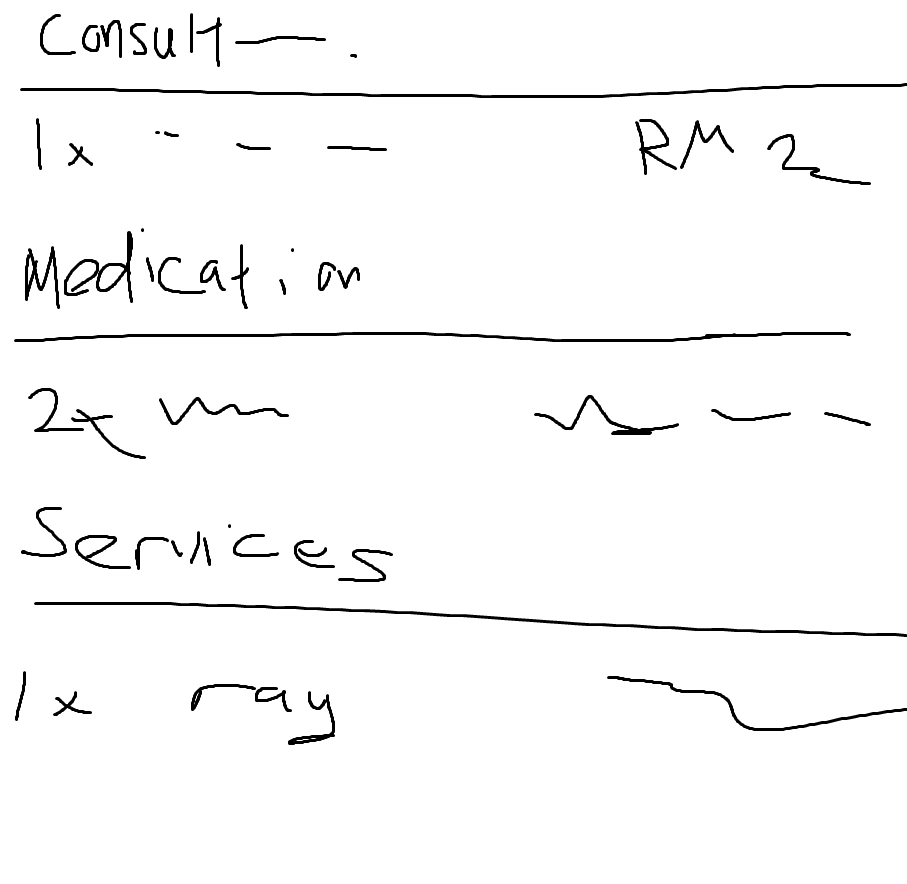 Consult
1x RM 2
Medication
2x
Services
1x ray